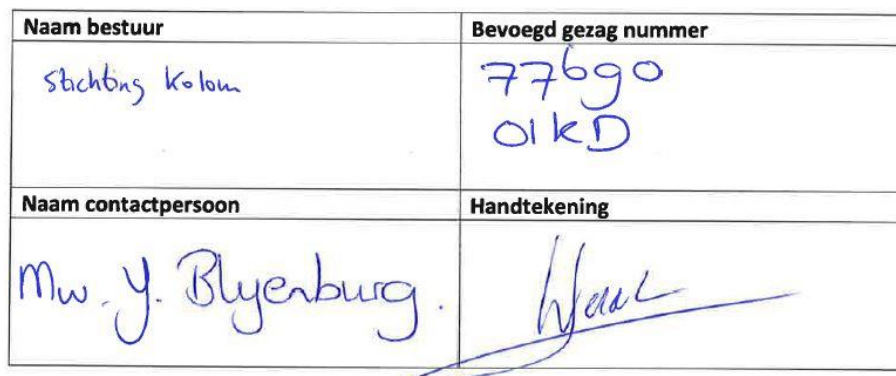 Naam bestuur
Bevoegd gezag nummer
Stichting Kolom
77690
01KD
Naam contactpersoon
Handtekening
Mw. Y. Blyenburg.